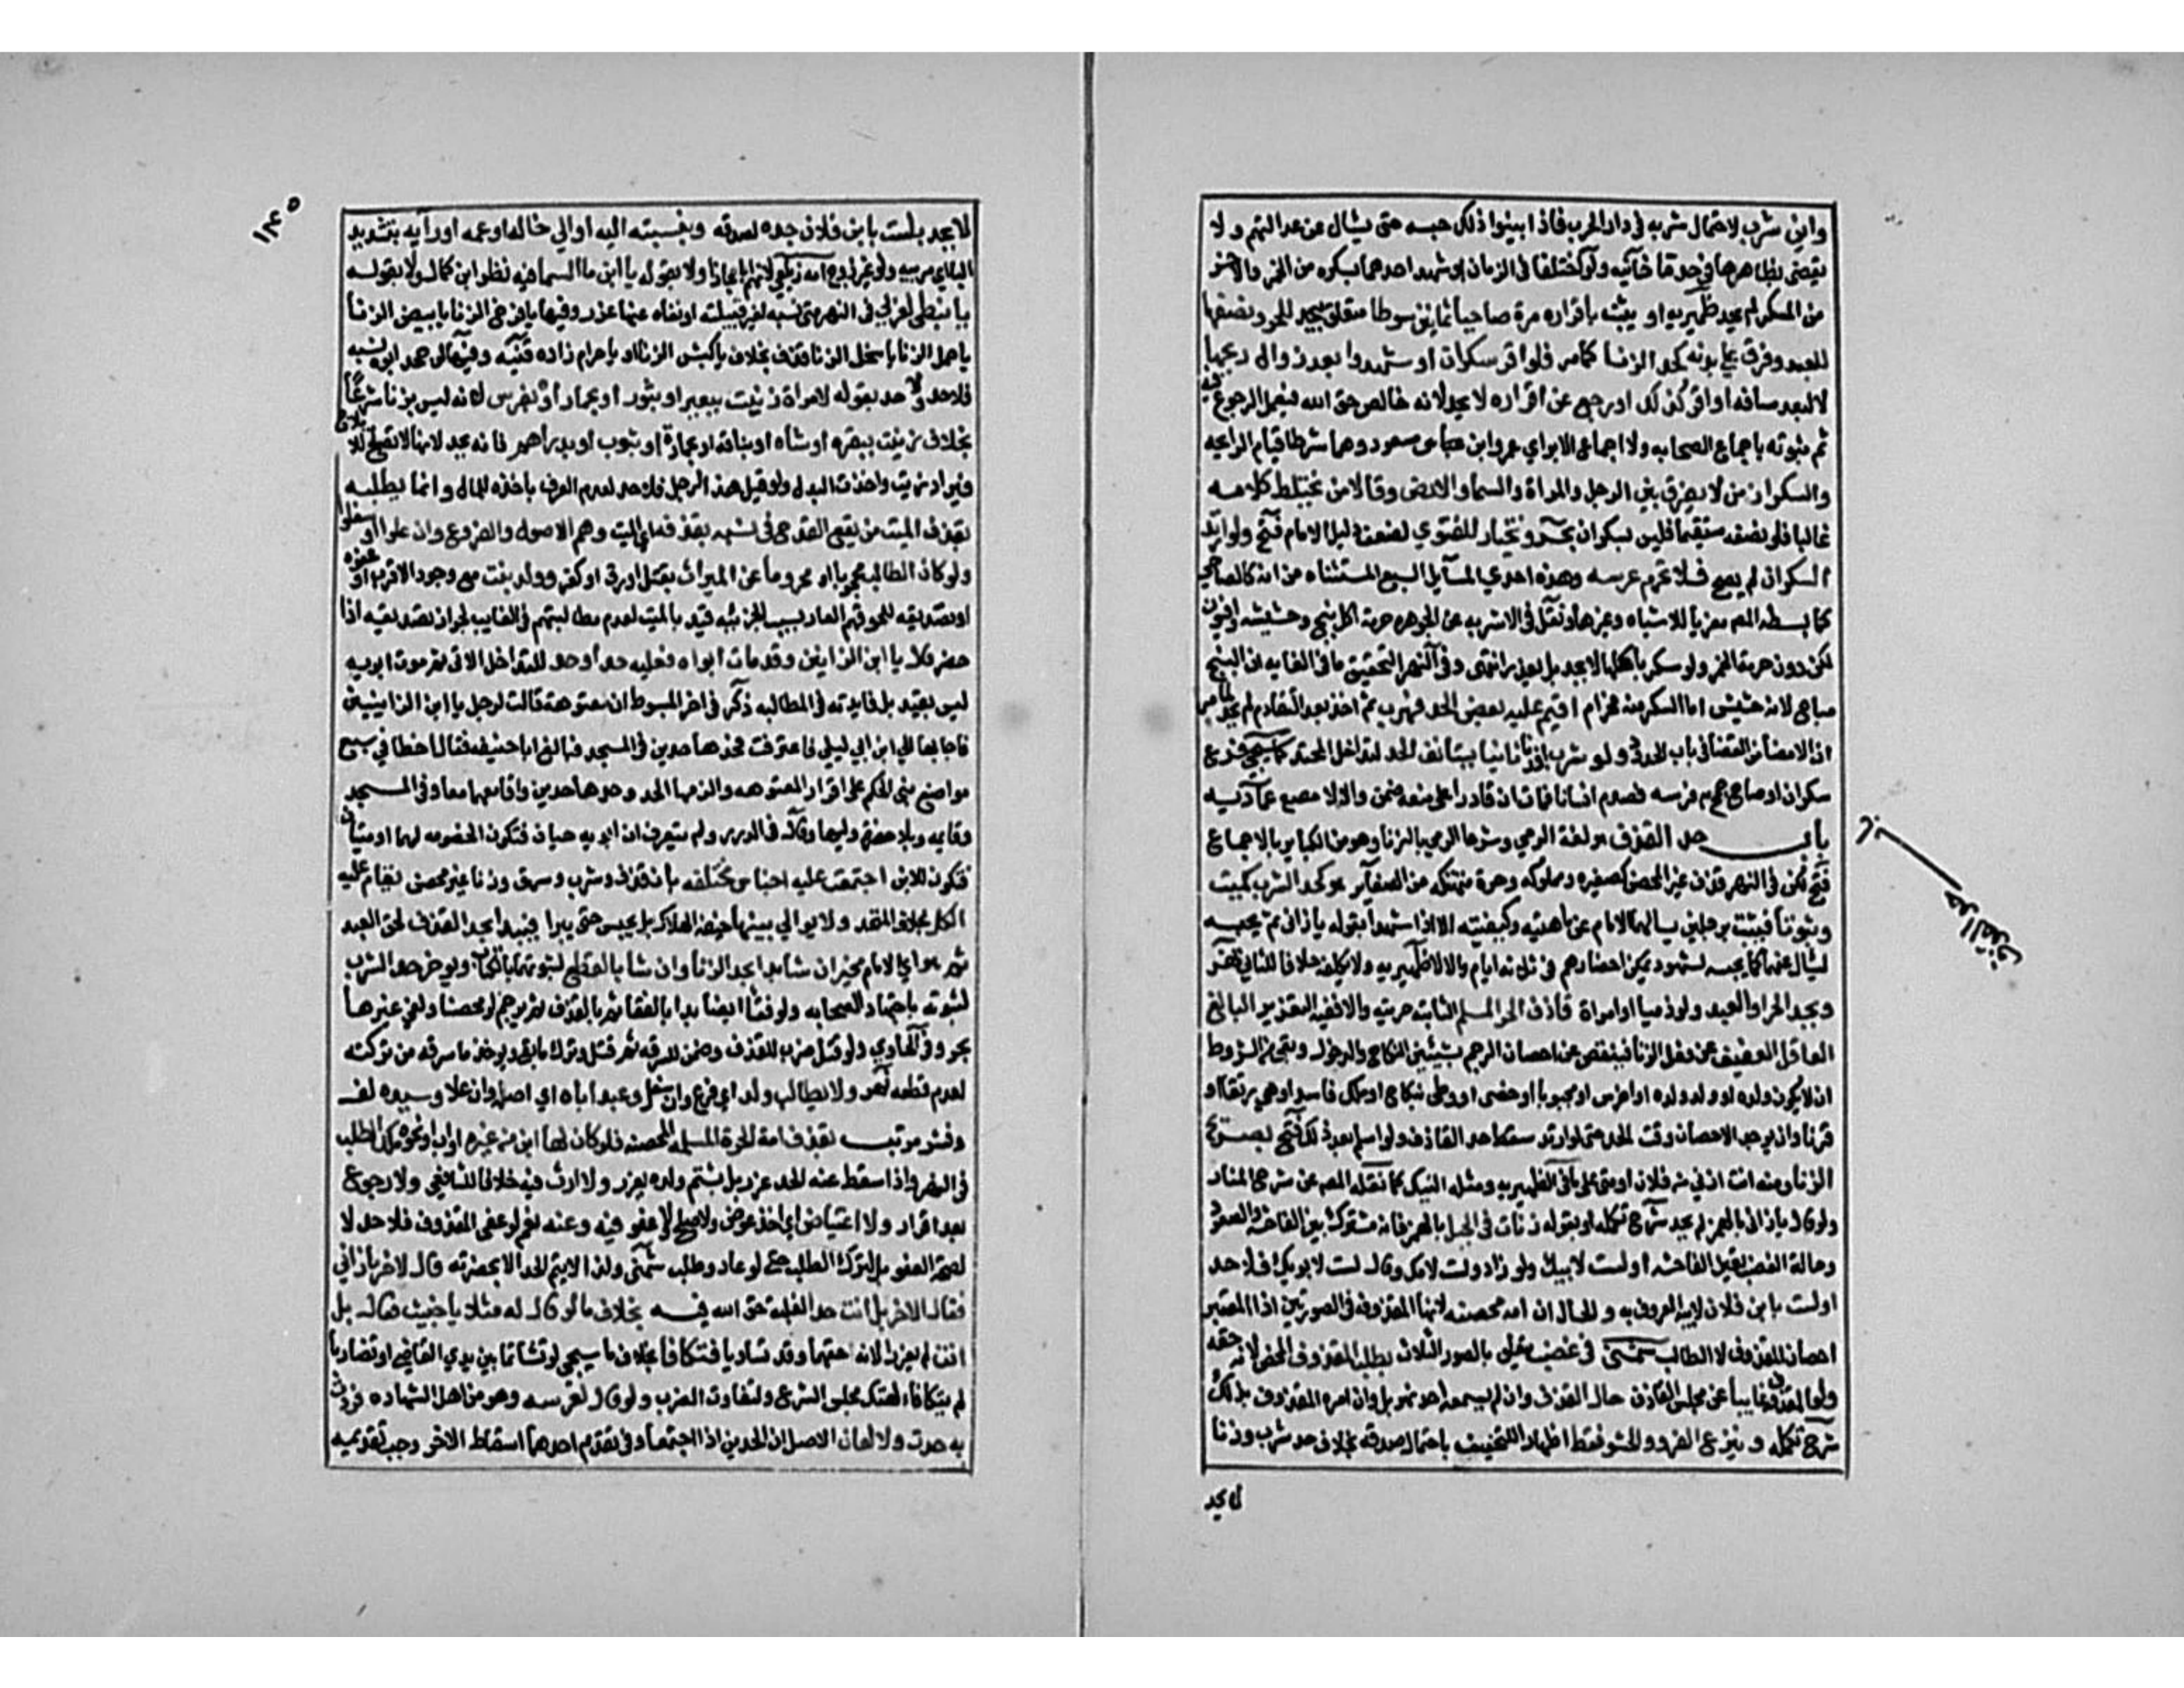 واين شرب لاحتمال شربه في دار الحرب فاذا بينوا ذلك حبسه حتى يسال عن عدالتهم ولا
يقضي بظاهرها في حد ما خانيه ولو اختلفا في الزمان او شهد احدهما بسكره من الخمر والاخر
من السكر لم يحد ظهيريه او يثبت باقراره مرة صاحيا ثمانين سوطا متعلق بيحد للحر ونصفها
للعبد وفرق على بدنه كحد الزنا كما مر فلو اقر سكران او شهدوا بعد زوال ريحها
لا لبعد مسافه او اقر كذلك او رجع عن اقراره لا يحد لانه خالص حق الله فيعمل الرجوع فيه
ثم ثبوته باجماع الصحابه ولا اجماع الا براي عمر وابن مسعود وهما شرطا قيام الرايحه
والسكران من لا يفرق بين الرجل والمراة والسما والارض وقالا من يختلط كلامه
غالبا فلو نصفه مستقيما فليس بسكران بحر ويختار للفتوي لضعف دليل الامام فتح ولو ارتد
السكران لم يصح فلا تحرم عرسه وهذه احدي المسايل السبع المستثناه من انه كالصاحي
كما بسطه المص معزيا للاشباه وغيرها ونقل في الاشربه عن الجوهره حرمة اكل بنج وحشيشه وافيون
لكن دون حرمة الخمر ولو سكر باكلها لا يحد بل يعزر انتهى وفي النهر التحقيق ما في الغايه ان البنج
مباح لانه حشيش اما السكر منه فحرام اقيم عليه بعض الحد فهرب ثم اخذ بعد التقادم لم يحد لما مر
ان الامضا من القضا في باب الحدود ولو شرب ثانيا يستانف الحد لتداخل المتحد كما سيجي فرع
سكران او صاح جمح به فرسه فصدم انسانا فمات ان قادرا على منعه ضمن والا لا مصنع عماديه
باب حد القذف هو لغة الرمي وشرعا الرمي بالزنا وهو من الكباير بالاجماع
فتح لكن في النهر قذف غير المحصن كصغيره ومملوكه وحرة متهتكه من الصغاير هو كحد الشرب كميت
وثبوتا فيثبت برجلين يسالهما الامام عن ماهيته وكيفيته الا اذا شهدا بقوله يا زاني ثم يحبسه
ليسال عنهما كما يحبسه لشهود يمكن احضارهم في ثلاثه ايام والا لا ظهيريه ولا يكفله خلافا للثاني نهر
ويحد الحر او العبد ولو ذميا او امراة قاذف الحر المسلم الثابته حريته والا ففيه التعزير البالغ
العاقل العفيف عن فعل الزنا فينقص عن احصان الرجم بشيئين النكاح والدخول وبقي من الشروط
ان لا يكون ولده او ولد ولده او اخرس او مجبوبا او خصي او وطي بنكاح او ملك فاسد او هي رتقا او
قرنا وان يوجد الاحصان وقت الحد حتى لو ارتد سقط حد القاذف ولو اسلم بعد ذلك فتح بصريح
الزنا ومنه انت ازني من فلان او مني على ما في الظهيريه ومثله النيك كما نقله المص عن شرح المنار
ولو قال يا زاني بالهمز لم يحد شرح تكمله او بقوله زنات في الجبل بالهمز فانه مشترك بين الفاحشه والصعود
وحالة الغضب تعين الفاحشه او لست لابيك ولو زاد ولست لامك او قال لست لابويك فلا حد
او لست بابن فلان لابيه المعروف به والحال ان امه محصنه لانها المقذوفه في الصورتين اذ المعتبر
احصان المقذوف لا الطالب شمني في غضب يتعلق بالصور الثلاث بطلب المقذوف المحصن لانه حقه
ولو المقذوف غايبا عن مجلس القاذف حال القذف وان لم يسمعه احد نهر بل وان امره المقذوف بذلك
شرح تكمله وينزع الفرو والحشو فقط اظهارا للتخفيف باحتمال صدقه بخلاف حد شرب وزنا
لا يحد
حد القذف
١٢٤٥
لا يحد بلست بابن فلان جده لصدقه وبنسبته اليه او الي خاله او عمه او رابه بتشديد
الباء اي مربيه ولو غير زوج امه زيلعي لانهم اباء مجازا ولا بقوله يا ابن ماء السما فيه نظر ابن كمال ولا بقوله
يا نبطي لعربي في النهر متى نسبه لغير قبيلته او نفاه عنها عزر وفيها يا فرخ الزنا يا بيض الزنا
يا حمل الزنا يا سخل الزنا قذف بخلاف يا كبش الزنا او يا حرام زاده قنيه وفيها لو جحد ابوه نسبه
فلا حد ولا حد بقوله لامراة زنيت ببعير او بثور او بحمار او بفرس لانه ليس بزنا شرعا
بخلاف زنيت ببقره او شاه او بناقه او بحمارة او بثوب او بدراهم فانه يحد لانها لا تصلح للايلاج
فيراد زنيت واخذت البدل ولو قيل هذا لرجل فلا حد لعدم العرف باخذه للمال وانما يطلبه
بقذف الميت من يقع القدح في نسبه بقذفه اي الميت وهم الاصول والفروع وان علوا او سفلوا
ولو كان الطالب محجوبا او محروما عن الميراث بقتل او رق او كفر وولد بنت مع وجود الاقرب او عفوه
او تصديقه للحوقهم العار بسبب الجزئيه قيد بالميت لعدم مطالبتهم في الغايب لجواز تصديقه اذا
حضر قال يا ابن الزانيين وقد مات ابواه فعليه حد واحد للتداخل الاتي ثم موت ابويه
ليس بقيد بل فايدته في المطالبه ذكر في اخر المبسوط ان معتوهة قالت لرجل يا ابن الزانيين
فجا بها الي ابن ابي ليلي فاعترفت فحدها حدين في المسجد فبلغ ابا حنيفه فقال اخطا في سبع
مواضع بني الحكم على اقرار المعتوهه والزمها الحد وحدها حدين واقامهما معا وفي المسجد
وقايمه وبلا حضرة وليها وقال في الدرر ولم يتعرف ان ابويه حيان فتكون الخصومه لهما او ميتان
فتكون للابن اجتمعت عليه اجناس مختلفه بان قذف وشرب وسرق وزنا غير محصن يقام عليه
الكل بخلاف المتحد ولا يوالي بينها خيفة الهلاك بل يحبس حتى يبرا فيبدا بحد القذف لحق العبد
ثم هو اي الامام مخير ان شا بدا بحد الزنا وان شا بالقطع لثبوتهما بالكتاب ويوخر حد الشرب
لثبوته باجتهاد الصحابه ولو فقا ايضا بدا بالفقا ثم بالقذف ثم يرجم لو محصنا ولغي غيرها
بحر وفي الحاوي ولو قتل ضرب للقذف وضمن للسرقه ثم قتل وترك ما بقي ويوخذ ما سرقه من تركته
لعدم قطعه نهر ولا يطالب ولد اي فرع وان سفل وعبد اباه اي اصله وان علا وسيده لف
ونشر مرتب بقذف امه الحرة المسلمه المحصنه فلو كان لها ابن من غيره او اب او نحوه ملك الطلب
في النهر واذا سقط عنه الحد عزر بل بشتم ولده يعزر ولا ارث فيه خلافا للشافعي ولا رجوع
بعد اقرار ولا اعتياض اي اخذ عوض ولا صلح ولا عفو فيه وعنه نعم لو عفى المقذوف فلا حد لا
لصحة العفو بل لترك الطلب حتى لو عاد وطلب حد شمني ولذا لا يتم الحد الا بحضرته قال لاخر يا زاني
فقال الاخر بل انت حدا لغلبة حق الله فيه بخلاف ما لو قال له مثلا يا خبيث فقال بل
انت لم يعزرا لانه حقهما وقد تساويا فتكافا بخلاف ما سيجي لو تشاتما بين يدي القاضي او تضاربا
لم يتكافا لهتك مجلس الشرع ولتفاوت الضرب ولو قال لعرسه وهو من اهل الشهاده فردت
به حدت ولا لعان الاصل ان الحدين اذا اجتمعا وفي تقديم احدهما اسقاط الاخر وجب تقديمه